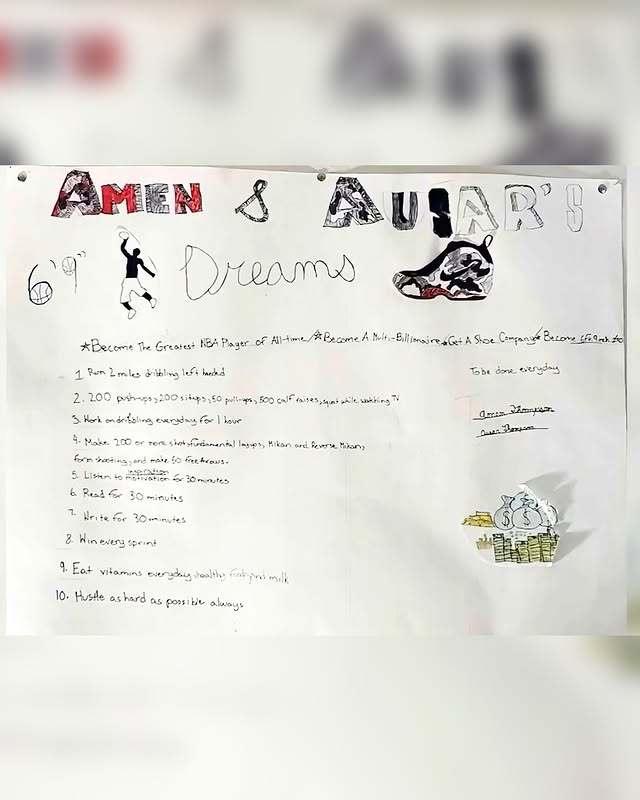 AMEN & AUSAR'S
6'9"
Dreams
*Become The Greatest NBA Player of All-time/*Become A Multi-Billionaire*Get A Shoe Company*Become 6ft 9inch
1 Run 2 miles dribbling left handed
To be done everyday
2. 200 push-ups, 200 situps, 50 pull-ups, 500 calf raises, squat while watching TV
3. Work on dribbling everyday for 1 hour
Amen Thompson
Ausar Thompson
4. Make 200 or more shot, fundamental layups, Mikan and Reverse Mikan,
form shooting, and make 50 free throws.
inspiration
5. Listen to motivation for 30 minutes
6. Read for 30 minutes
7. Write for 30 minutes
8. Win every sprint
9. Eat vitamins everyday, healthy food, and milk
10. Hustle as hard as possible always
$ $